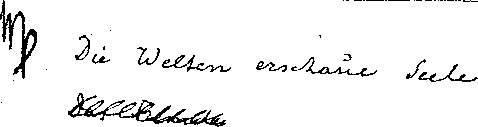 ♍ Die Welten erschaue Seele